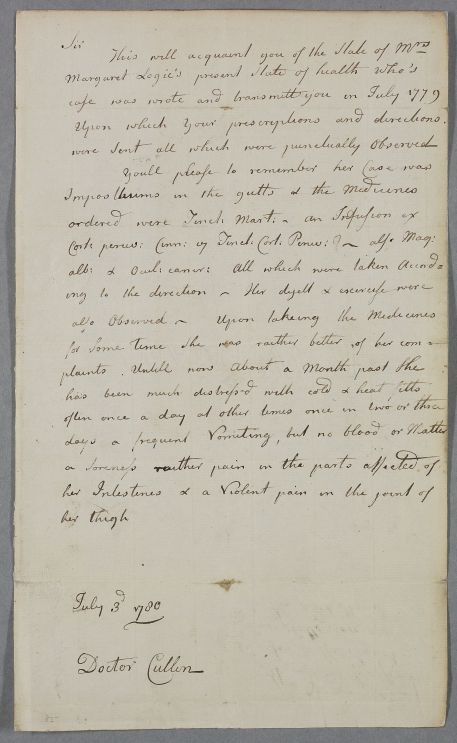 Sir
This will acquaint you of the State of Mrs
Margaret Logie's present State of health who's
case was wrote and transmitt you in July 1779
Upon which your prescriptions and directions
were sent all which were punctually Observed
Youll please to remember her Case was
Imposthums in the gutts & the Medicenes
ordered were Tinct: Mart: - an Infusion ex
Cort: peruv: Cinn: cy Tinct: Cort: Peruv: - also Mag:
alb: & Ocul: cancr: All which were taken Accord
ing to the direction - Her dyett & exercise were
also Observed - Upon takeing the Medicenes
for Some time She was raither better of her com=
plaints. Untill now About a Month past She
has been much distress'd with cold & heat fitts
often once a day at other times once in two or three
days a frequent Vomiting, but no blood or Matter
a Soreness raither pain in the parts affected of
her Intestenes & a Violent pain in the joint of
her thigh
July 3d 1780
Doctor Cullen